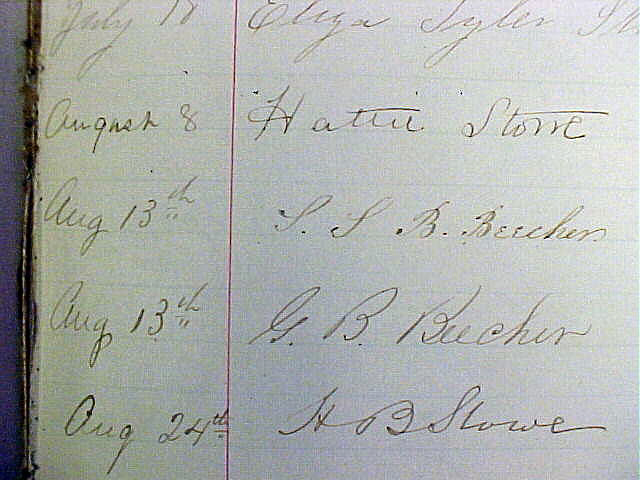 July 18 Eliza Tyler
August 8 Hattie Stowe
Aug 13th S. S B. Beecher
Aug 13th G. B. Beecher
Aug 24th H B Stowe